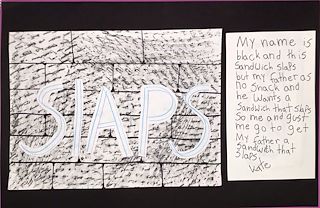 SlAPS
My name is
black and this
Sandwich slaps
but my father as
no snack and
he wants a
Sandwich that Slaps
So me and Just
me go to get
My father a
Sandwich that
Slaps
Vale